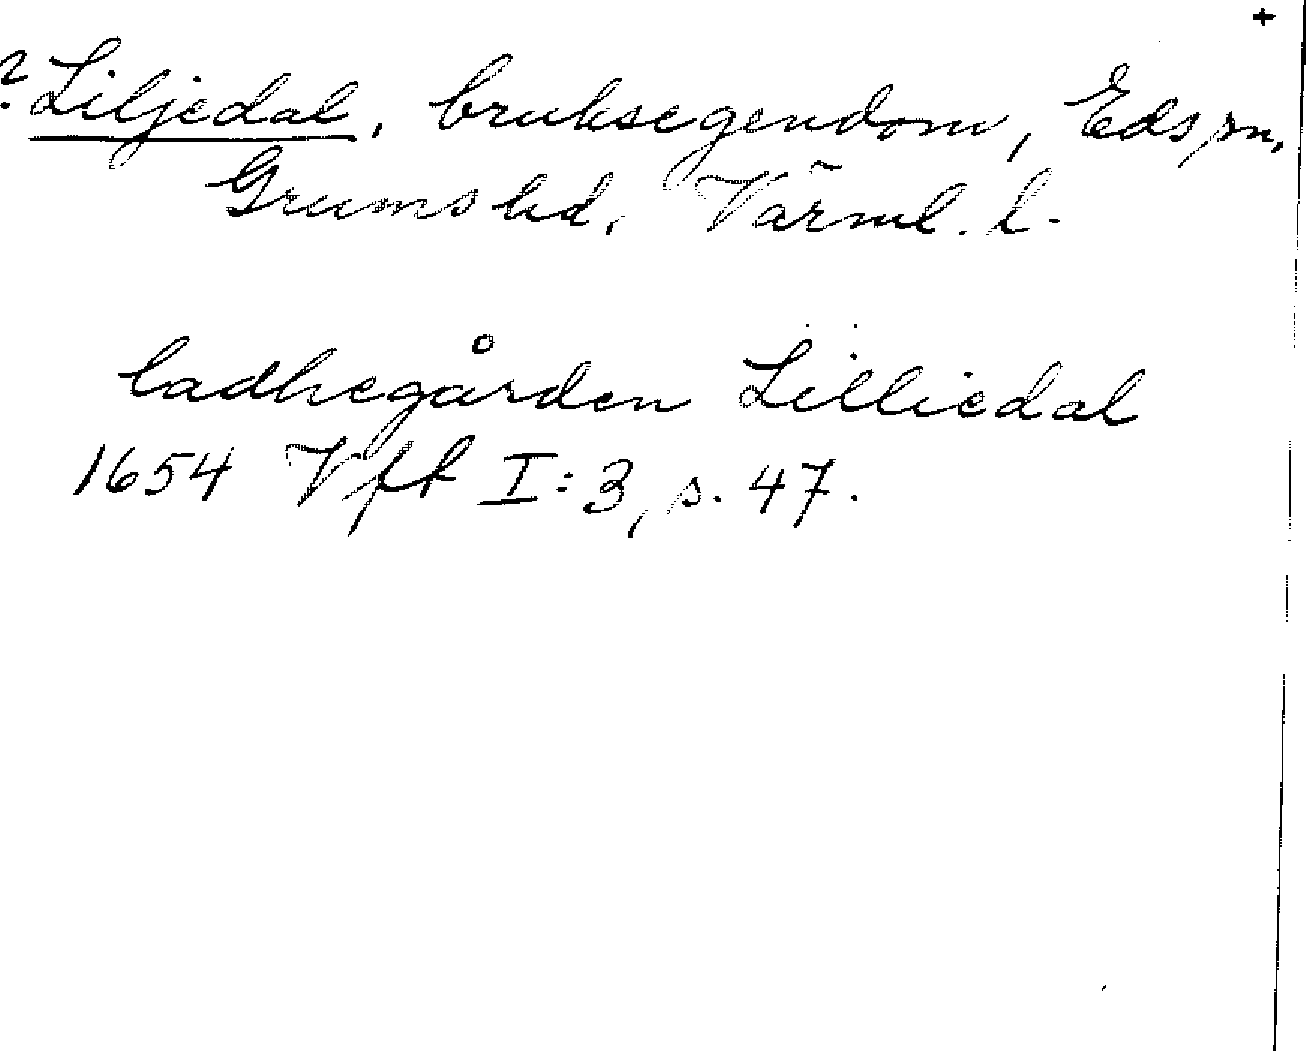 +
? Liljedal, bruksegendom, Eds sn,
Grums hd, Värml. l.
ladhegården Lilliedal
1654 Vfk I:3, s. 47.